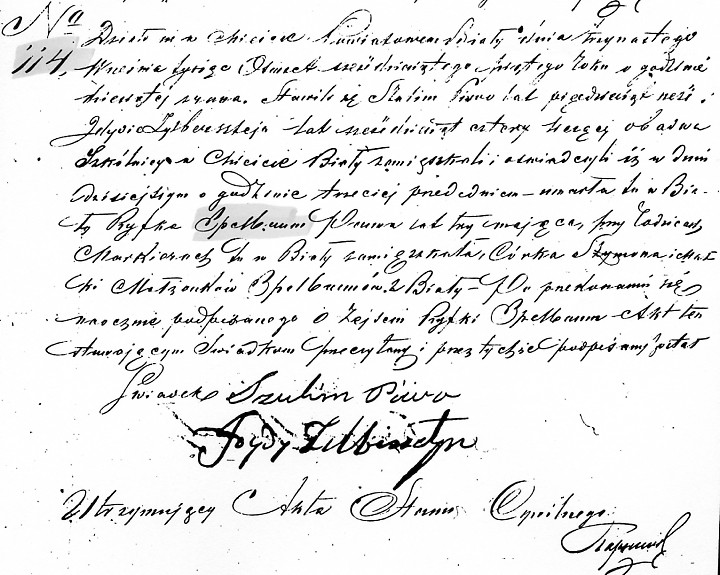 No
114. Działo się w Mieście Powiatowem Biały dnia trzynastego
Kwietnia tysiąc Ośmset sześćdziesiątego piątego roku o godzinie
dziewiątej z rana. Stawili się Szulim Piwo lat pięćdziesiąt i
lat sześćdziesiąt cztery liczący obadwa
Szkólnicy w Mieście Biały zamięszkali i oświadczyli iż w dniu
dzisiejszym o godzinie trzeciej przededniem umarła tu w Bia-
ły Ryfka Szpelbaum Panna lat trzy mająca, przy Rodzicach
tu w Biały zamięszkała, Córka Szymona i
ki Małżonków Szpelbaumów z Biały - Po przekonaniu się
naocznie podpisanego o Zejściu Ryfki Szpelbaum Akt ten
stawającym Świadkom przeczytany i przez tychże podpisany został
Świadek Szulim Piwo

Utrzymujący Akta Stanu Cywilnego